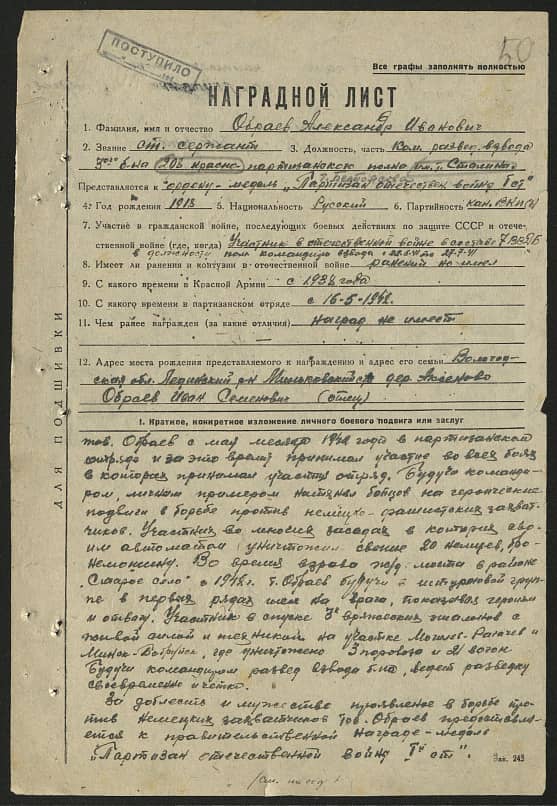 ПОСТУПИЛО
50
Все графы заполнять полностью
НАГРАДНОЙ ЛИСТ
1. Фамилия, имя и отчество Обраев Александр Иванович
2. Звание ст. сержант 3. Должность, часть Ком. развед. взвода
б-на 208 партизанского полка им. т. Сталина
Представляется к ордену-медаль „Партизан отечествен войны I ст"
4. Год рождения 1913 5. Национальность Русский 6. Партийность кан. ВКП(б)
7. Участие в гражданской войне, последующих боевых действиях по защите СССР и отече-
ственной войне (где, когда) Участник в отечественной войне в составе
в должности пом. командира взвода с
8. Имеет ли ранения и контузии в отечественной войне ранений не имел
9. С какого времени в Красной Армии с 1938 года
10. С какого времени в партизанском отряде с 16-5-1942.
11. Чем ранее награжден (за какие отличия) наград не имеет
12. Адрес места рождения представляемого к награждению и адрес его семьи Вологод-
ская обл. р-н дер.
Обраев Иван Семенович (отец)
ДЛЯ ПОДШИВКИ
I. Краткое, конкретное изложение личного боевого подвига или заслуг
тов. Обраев с мая месяца 1942 года в партизанском
отряде и за это время принимал участие во всех боях
в которых принимал участие отряд. Будучи команди-
ром, личным примером бойцов на героические
подвиги в борьбе против немецко-фашистских захват-
чиков. Участник во многих засадах в которых сво-
им автоматом уничтожил свыше 20 немцев,
Во время взрыва ж/д. моста в районе
„Старое село" в 1942 г. т. Обраев будучи в штурмовой груп-
пе в первых рядах шел на врага, показывая героизм
и отвагу. Участник в спуске 3х вражеских эшелонов с
живой силой и техникой на участке Могилев-Рогачев и
Минск-Бобруйск, где уничтожено 3 паровоза и 21 вагон
Будучи командиром развед взвода б-на, ведет разведку
своевременно и четко.
За доблесть и мужество проявленое в борьбе про-
тив немецких захватчиков тов. Обраев представля-
ется к правительственной награде-медаль
„Партизан отечественной войны I й ст".
Зак. 243